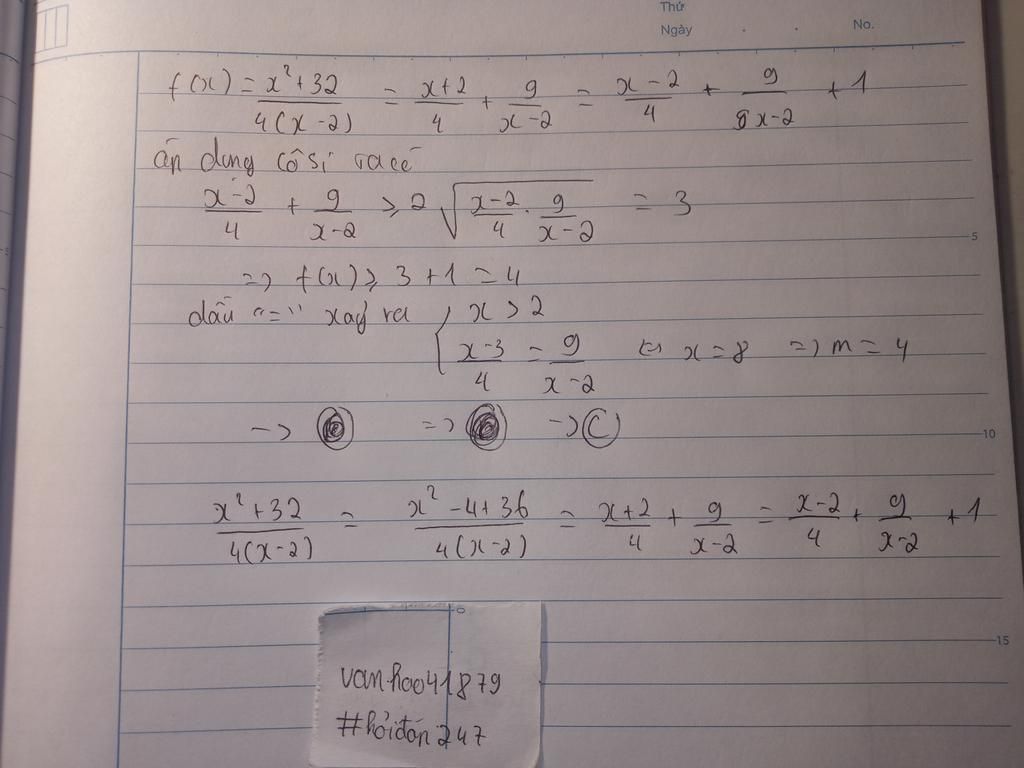 Thứ
Ngày . . No.
f(x) = \frac{x^2+32}{4(x-2)} = \frac{x+2}{4} + \frac{9}{x-2} = \frac{x-2}{4} + \frac{9}{x-2} + 1
áp dụng cô si ta có
\frac{x-2}{4} + \frac{9}{x-2} ≥ 2\sqrt{\frac{x-2}{4} \cdot \frac{9}{x-2}} = 3
5
=> f(x) ≥ 3 + 1 = 4
dấu "=" xảy ra { x > 2
\frac{x-3}{4} = \frac{9}{x-2} <=> x = 8 => m = 4
-> => -> C
10
\frac{x^2+32}{4(x-2)} = \frac{x^2-4+36}{4(x-2)} = \frac{x+2}{4} + \frac{9}{x-2} = \frac{x-2}{4} + \frac{9}{x-2} + 1
15
vanhao041879
#hỏiđáp247